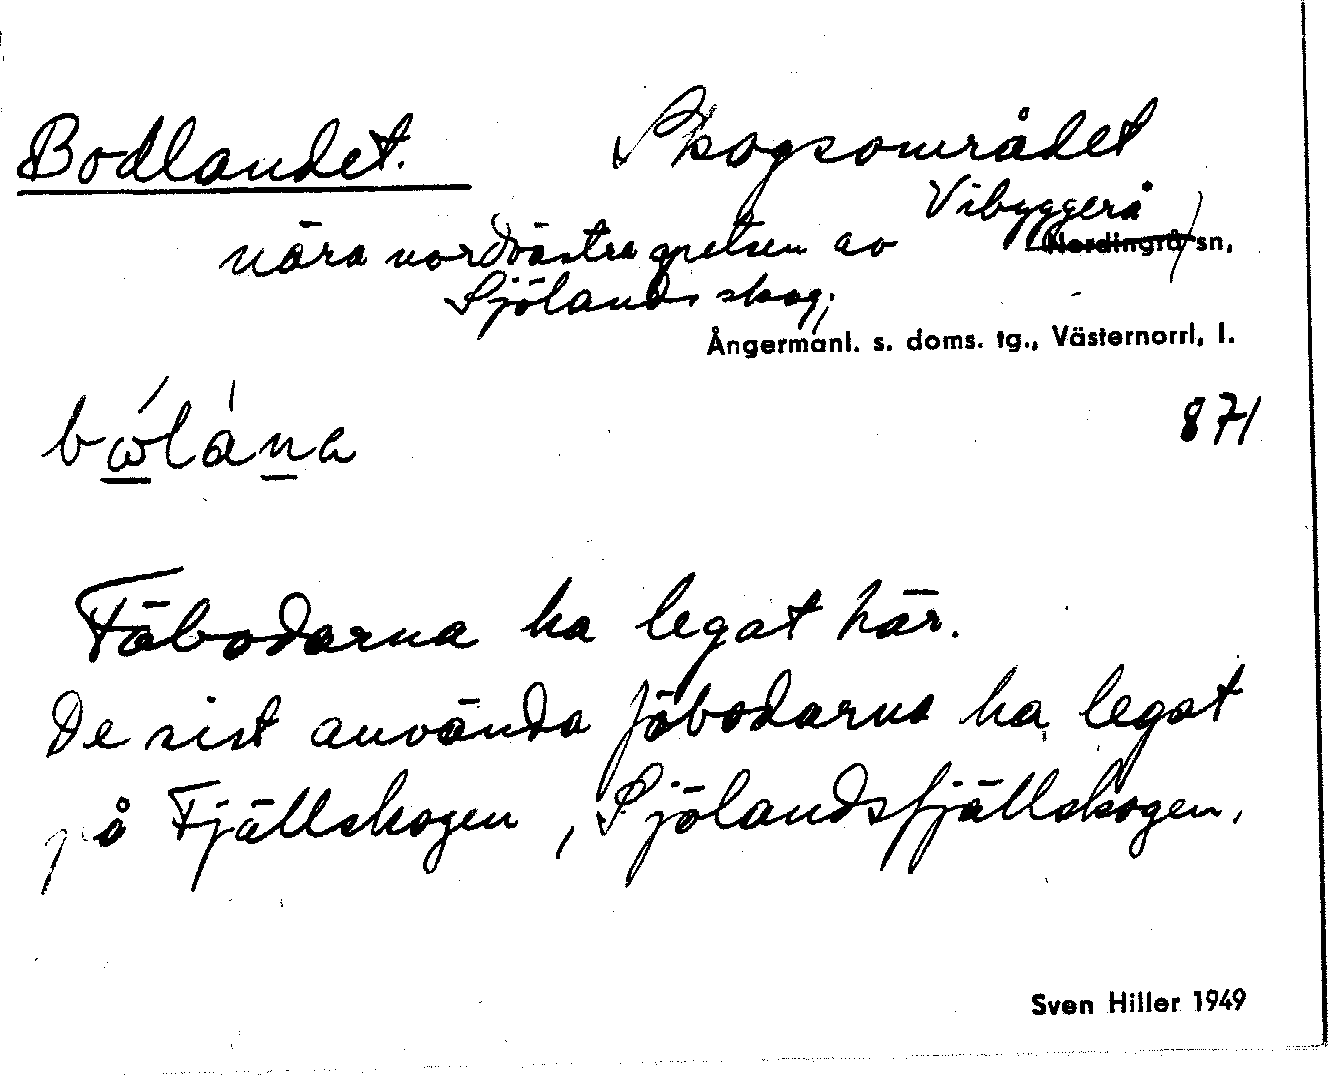 Bodlandet. Skogsområdet
Vibyggerå
nära nordvästra gränsen av Nordingrå sn,
Sjölands skog;
Ångermanl. s. doms. tg., Västernorrl. l.
871
Fäbodarna ha legat här.
De sist använda fäbodarna ha legat
på Fjällskogen, Sjölandsfjällskogen.
Sven Hiller 1949